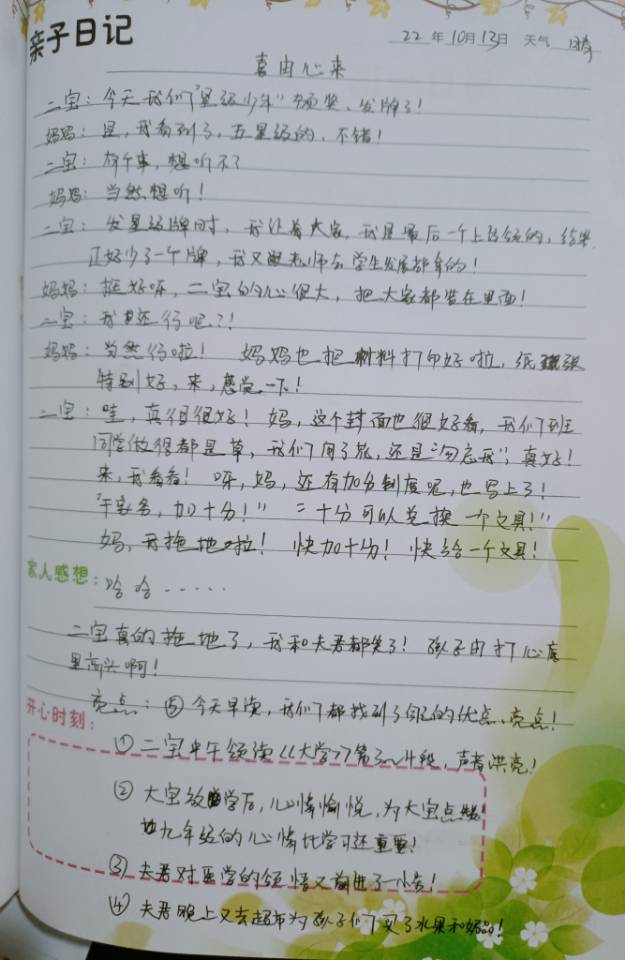 亲子日记
22年10月13日 天气
喜由心来
二宝：今天我们"星级少年"颁奖、发牌了！
妈妈：是，我看到了，五星级的，不错！
二宝：有个事，想听不？
妈妈：当然想听！
二宝：发星级牌时，我让着大家，我是最后一个上台领的，结果
正好少了一个牌，我又跟老师去学生发展部拿的！
妈妈：挺好呀，二宝的心很大，把大家都装在里面！
二宝：我还行吧？！
妈妈：当然行啦！ 妈妈也把材料打印好啦，纸张
特别好，来，感觉一下！
二宝：哇，真得很好！妈，这个封面也很好看，我们班
同学做得都是草，我们用了花，还是"勿忘我"，真好！
来，我看看！ 呀，妈，还有加分制度呢，也写上了！
"干家务，加十分！" "二十分可以兑换一个文具！"
妈，我拖地啦！ 快加十分！ 快给一个文具！
家人感想：哈哈·····
二宝真的拖地了，我和夫君都笑了！ 孩子由打心底
里高兴啊！
亮点：⑤ 今天早读，我们都找到了自己的优点、亮点！
开心时刻：
① 二宝中午领读《大学》第3~4段，声音洪亮！
② 大宝放学后，心情愉悦，为大宝点赞
九年级的心情比学习还重要！
③ 夫君对医学的领悟又前进了一小步！
④ 夫君晚上又去超市为孩子们买了水果和奶！